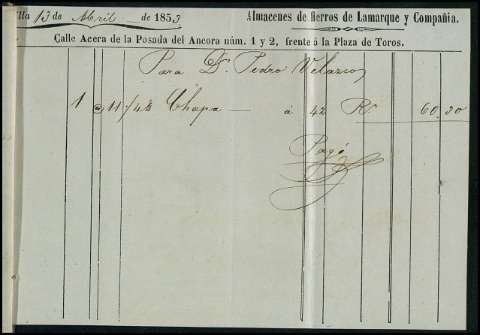 lla 13 de Abril de 1853 Almacenes de Hierros de Lamarque y Compañia.
Calle Acera de la Posada del Ancora núm. 1 y 2, frente á la Plaza de Toros.
Para Dn. Pedro Velazco
1 @ 11 /43 Chapa — á 42 Rs. 60,30
Pagó